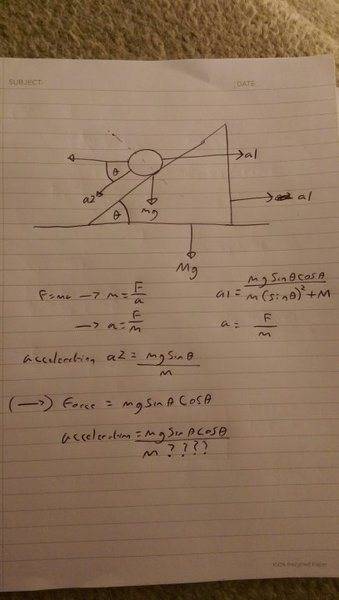 SUBJECT:
DATE:
a1
θ
a2
θ
mg
a1
Mg
F=ma → m = F/a
a1 = mgsinθcosθ/m(sinθ)²+M
→ a = F/m
a = F/m
acceleration a2 = mgsinθ/m
(→) Force = mgsinθcosθ
acceleration = mgsinθcosθ/m ????
100% Recycled Paper